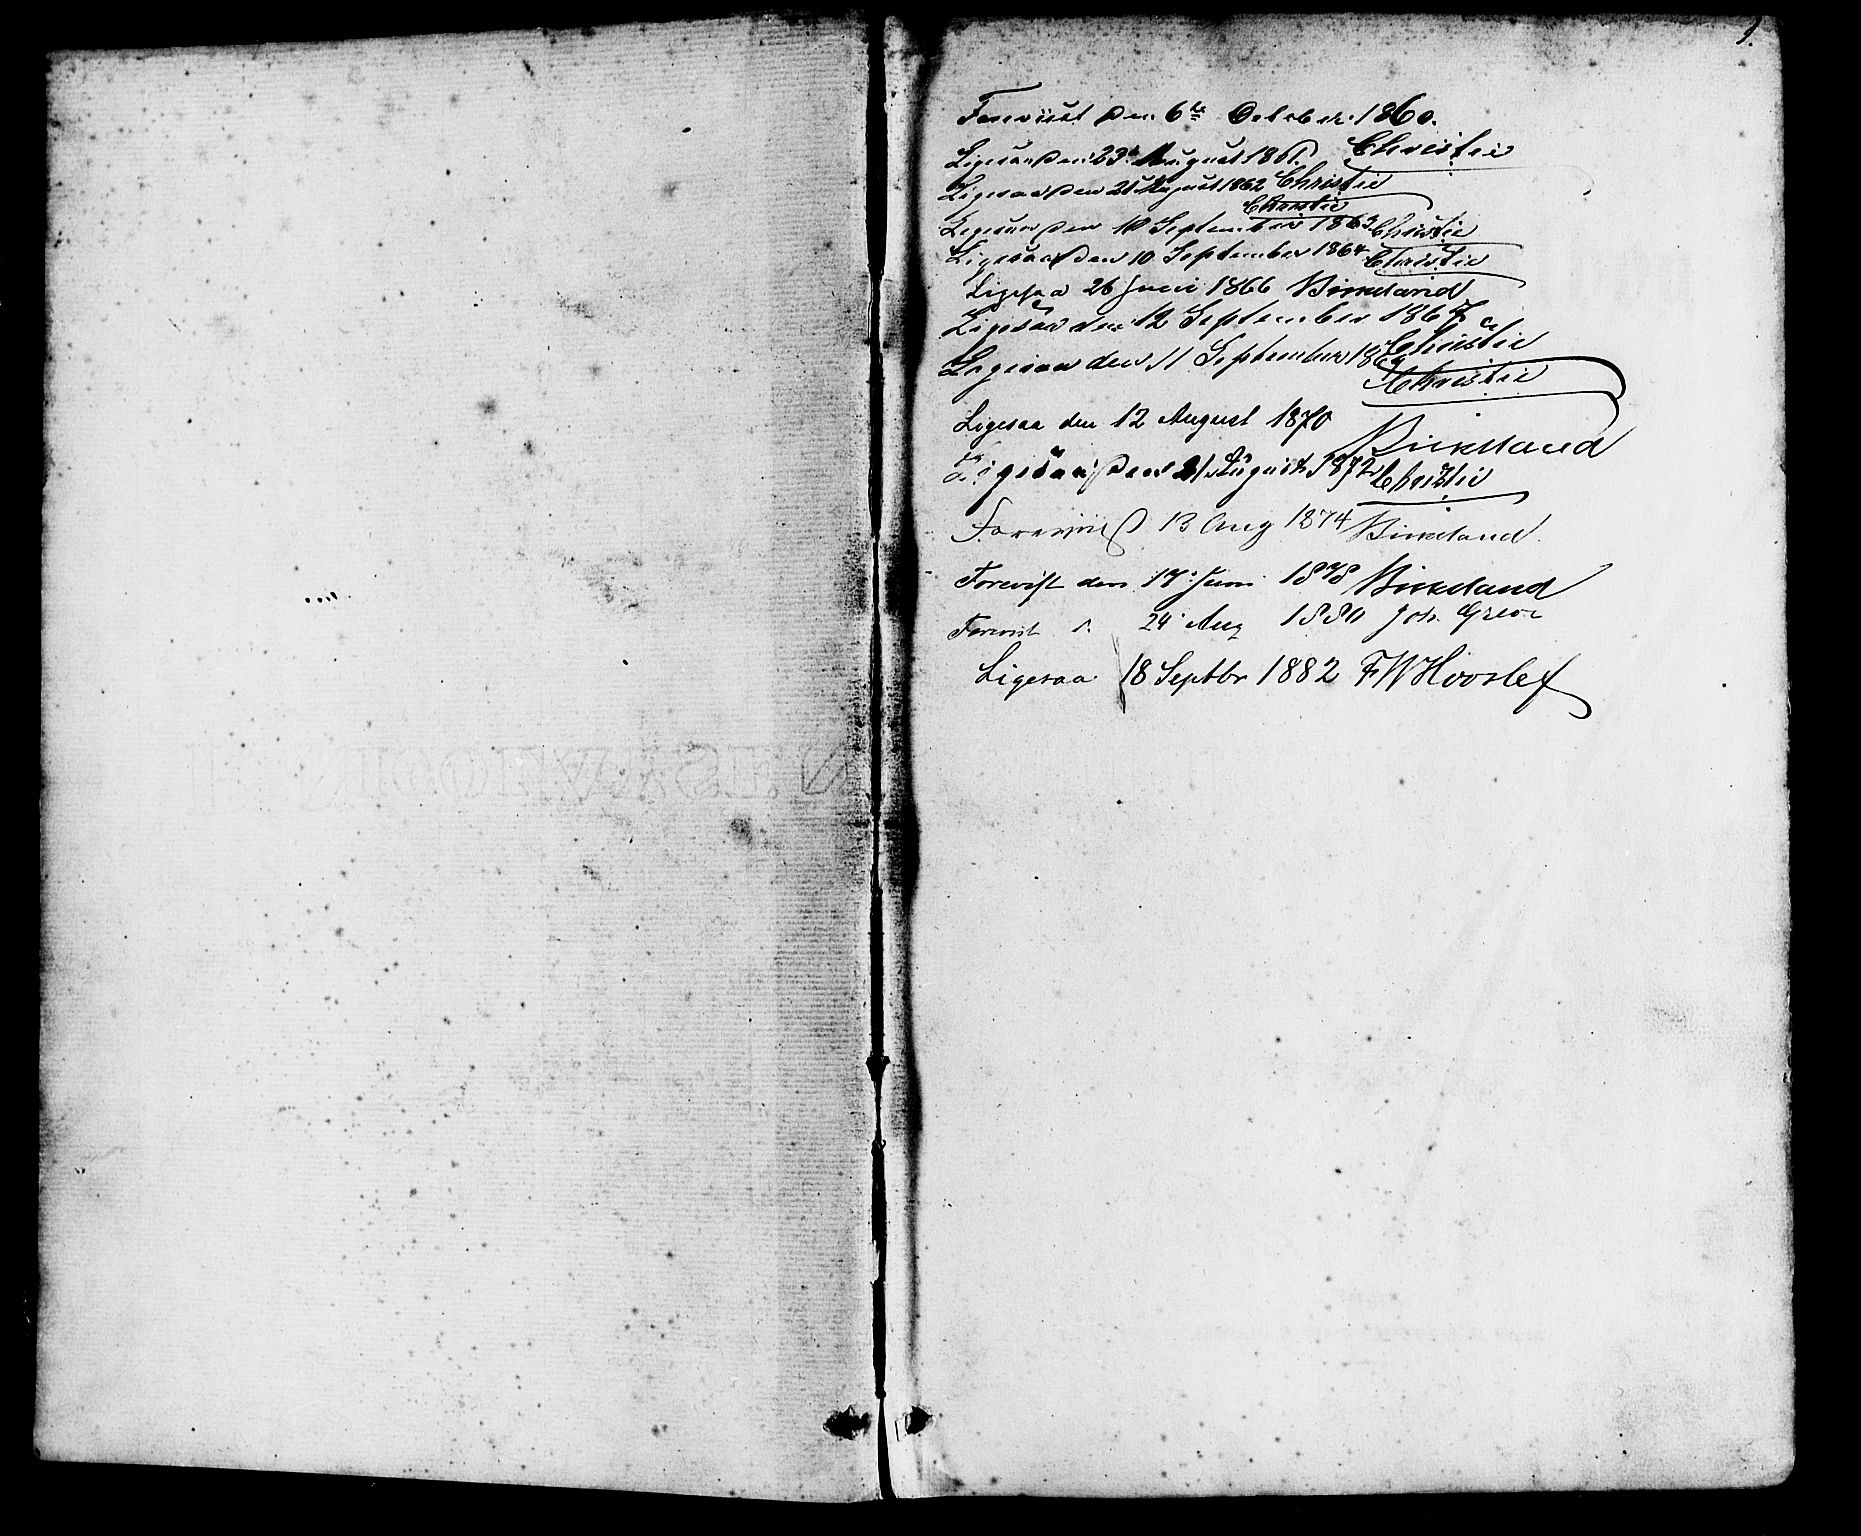 1.
Foreviist den 6te October 1860.
Christie
Ligesaa den 23de August 1861. Christie
Ligesaa den 21 August 1862 Christie
Ligesaa den 18 September 1863 Christie
Ligesaa den 10 September 1864 Christie
Ligesaa 26 Juni 1866 Birkeland
Ligesaa den 12 September 1867
Christie
Ligesaa den 11 September 1869
Christie
Ligesaa den 12 August 1870
Birkeland
Ligesaa den 21 August 1872 Christie
Foreviist 13 Aug 1874 Birkeland.
Forevist den 17. Juni 1878 Birkeland
Forevist d. 24 Aug 1880 Joh. Greve
Ligesaa 18 Septbr 1882 FW Hvoslef